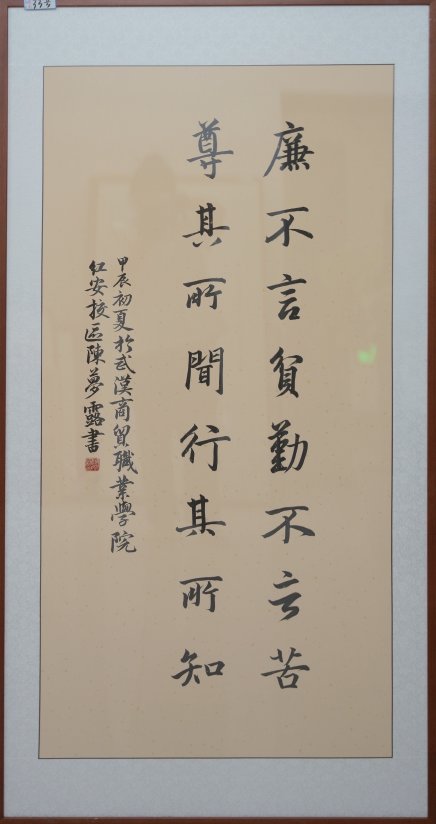 廉不言貧勤不言苦
尊其所聞行其所知
甲辰初夏於武漢商貿職業學院
紅安校區陳夢露書